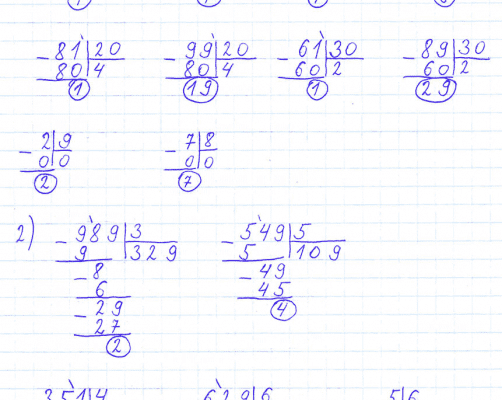 - 81 | 20   - 99 | 20   - 61 | 30   - 89 | 30
80 | 4   80 | 4   60 | 2   60 | 2
1   19   1   29
- 2 | 9   - 7 | 8
0 | 0   0 | 0
2   7
2) - 989 | 3   - 549 | 5
9 | 329   5 | 109
- 8   - 49
6   45
- 29   4
27
2
351 | 4   629 | 6   5 | 6